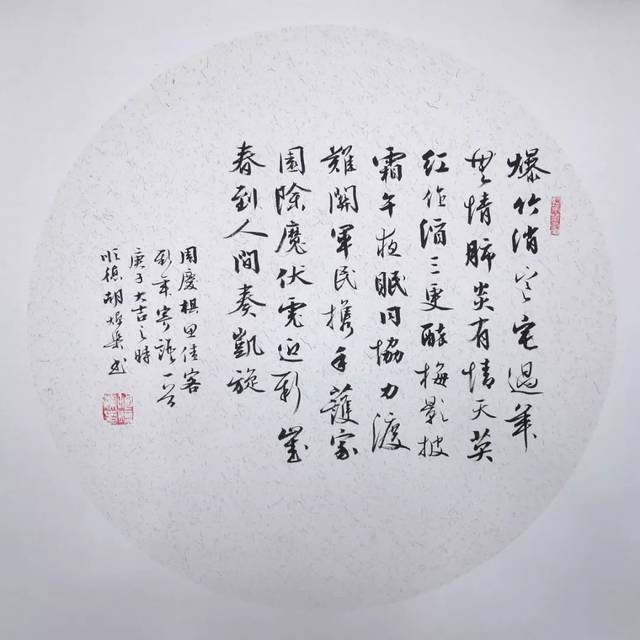 爆竹消宅過年
無情肺炎有情天英
紅作酒三更醉梅影披
霜午夜眠同協力渡
難關軍民攜手護家
園除魔伏迎新歲
春到人間奏凱旋
周慶棋里佳客
新年寄語一首
庚子大吉之時
順德胡书